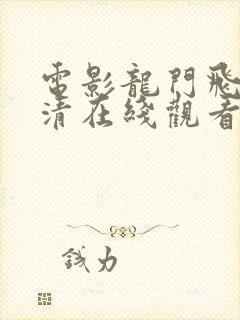 電影龍門飛
清在綫觀看
钱力